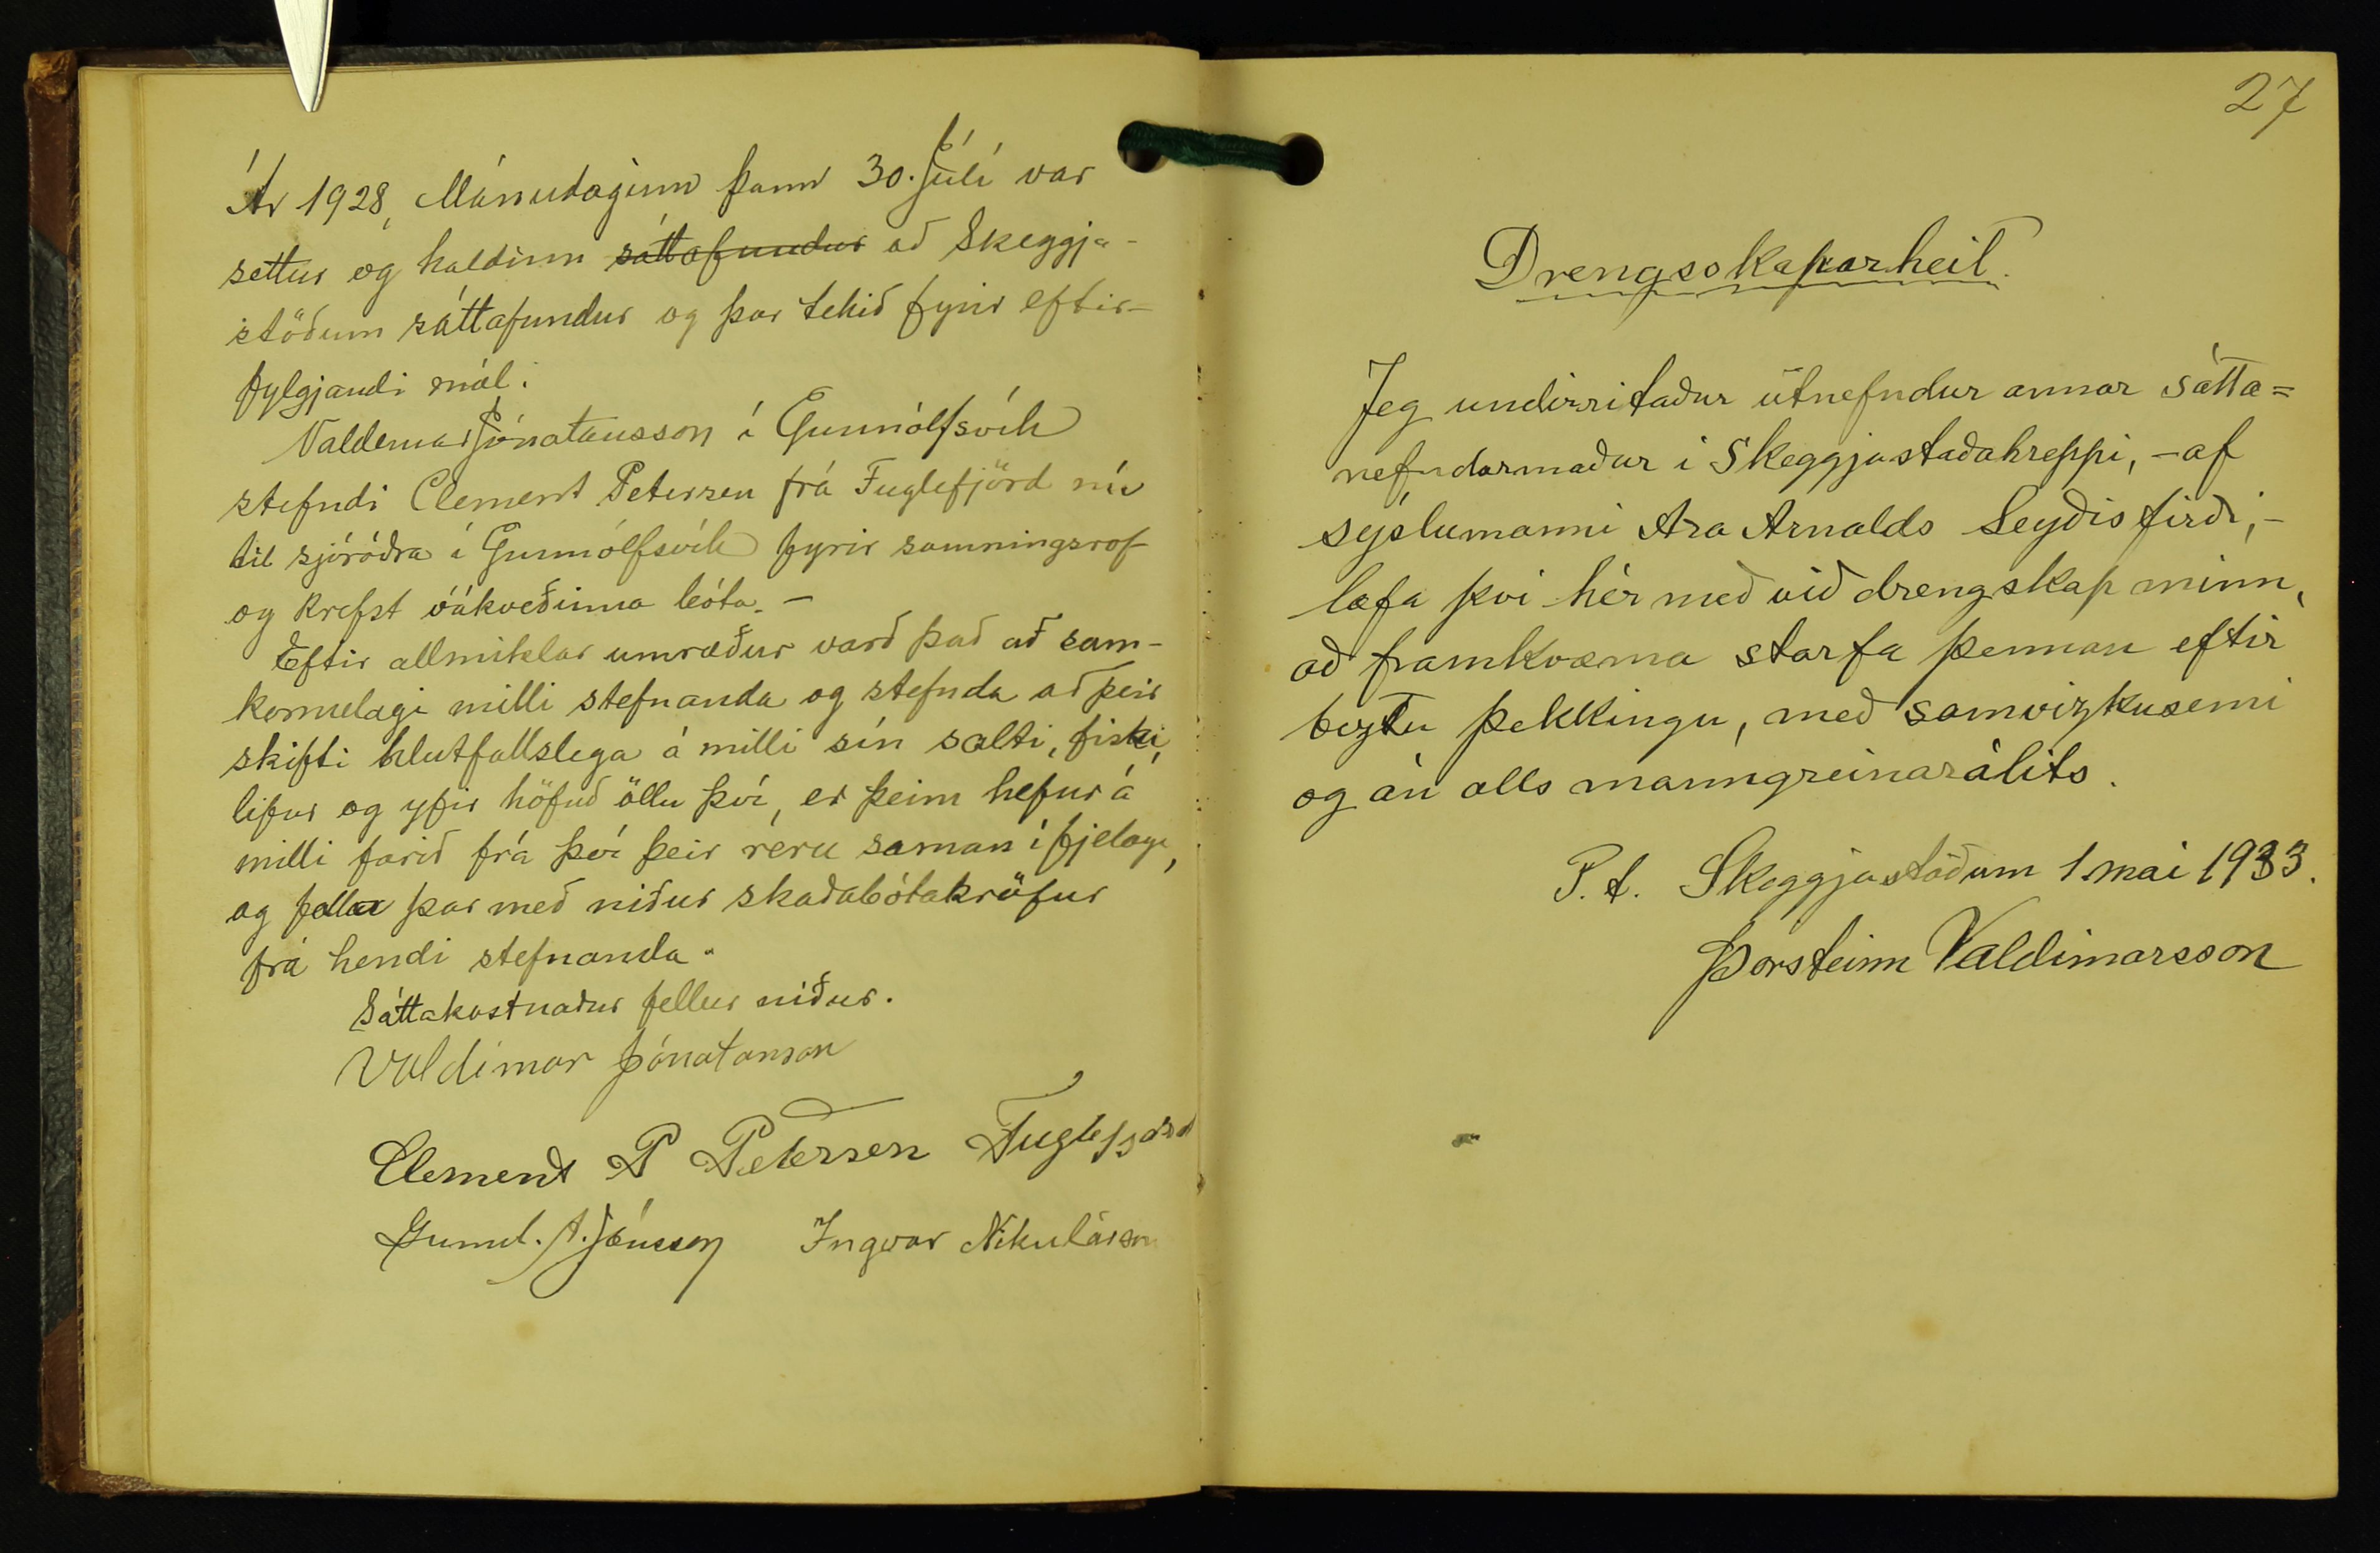 Ár 1928, Mánudaginn þann 30. Júlí var
settur og haldinn sáttafundur að Skeggja-
stöðum sáttafundur og þar tekið fyrir eftir-
fylgjandi mál:
Valdemar Jónatansson í Gunnólfsvík
stefndi Clement Petersen frá Fuglefjörd nú
til sjóróðra í Gunnólfsvík fyrir samningsrof
og krefst óákveðinna bóta. -
Eftir allmiklar umræður varð það að sam-
komulagi milli stefnanda og stefnda að þeir
skifti hlutfallslega á milli sín salti, fiski,
lifur og yfir höfuð öllu því, er þeim hefur á
milli farið frá því þeir réru saman í fjelagi,
og falla þar með niður skaðabótakröfur
frá hendi stefnanda.
Sáttakostnaður fellur niður.
Valdimar Jónatanson
Clement P Petersen Fuglefjord
Guml. A. Jónsson Ingvar Nikulásson
27
Drengsskaparheit.
Jeg undirritaður útnefndur annar sátta=
nefndarmaður i Skeggjastaðahreppi, - af
sýslumanni Ara Arnalds Seyðisfirði, -
lofa því hér með við drengskap minn,
að framkvæma starfa þennan eftir
beztu þekkingu, með samvizkusemi
og án alls manngreinarálits.
P.t. Skeggjastöðum 1 mai 1933.
Þorsteinn Valdimarsson